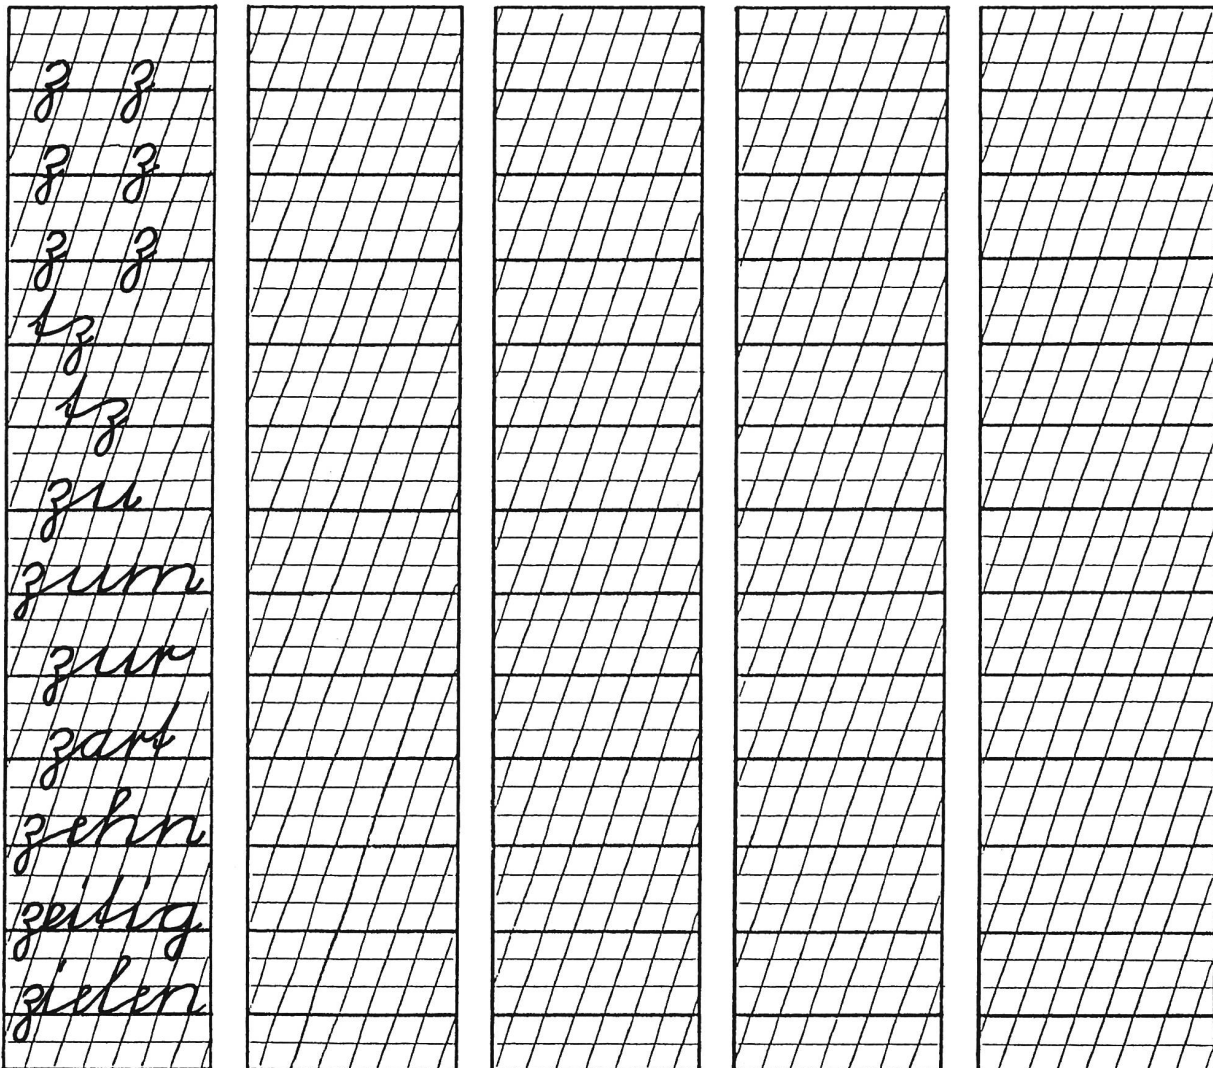 z z
z z
z z
tz
tz
zu
zum
zur
zart
zehn
zeitig
zielen